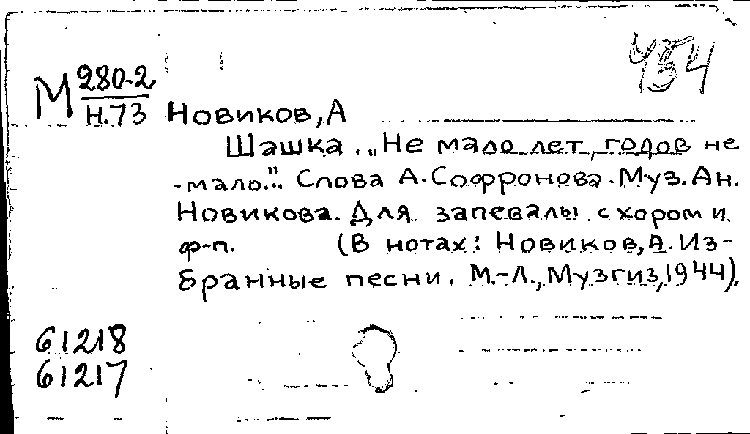 454
М 280-2
Н.73 Новиков, А
Шашка. „Не мало лет, годов не
-мало.". Слова А. Софронова. Муз. Ан.
Новикова. Для запевалы с хором и
ф-п. (В нотах: Новиков, А. Из-
бранные песни. М.-Л., Музгиз, 1944).
61218
61217